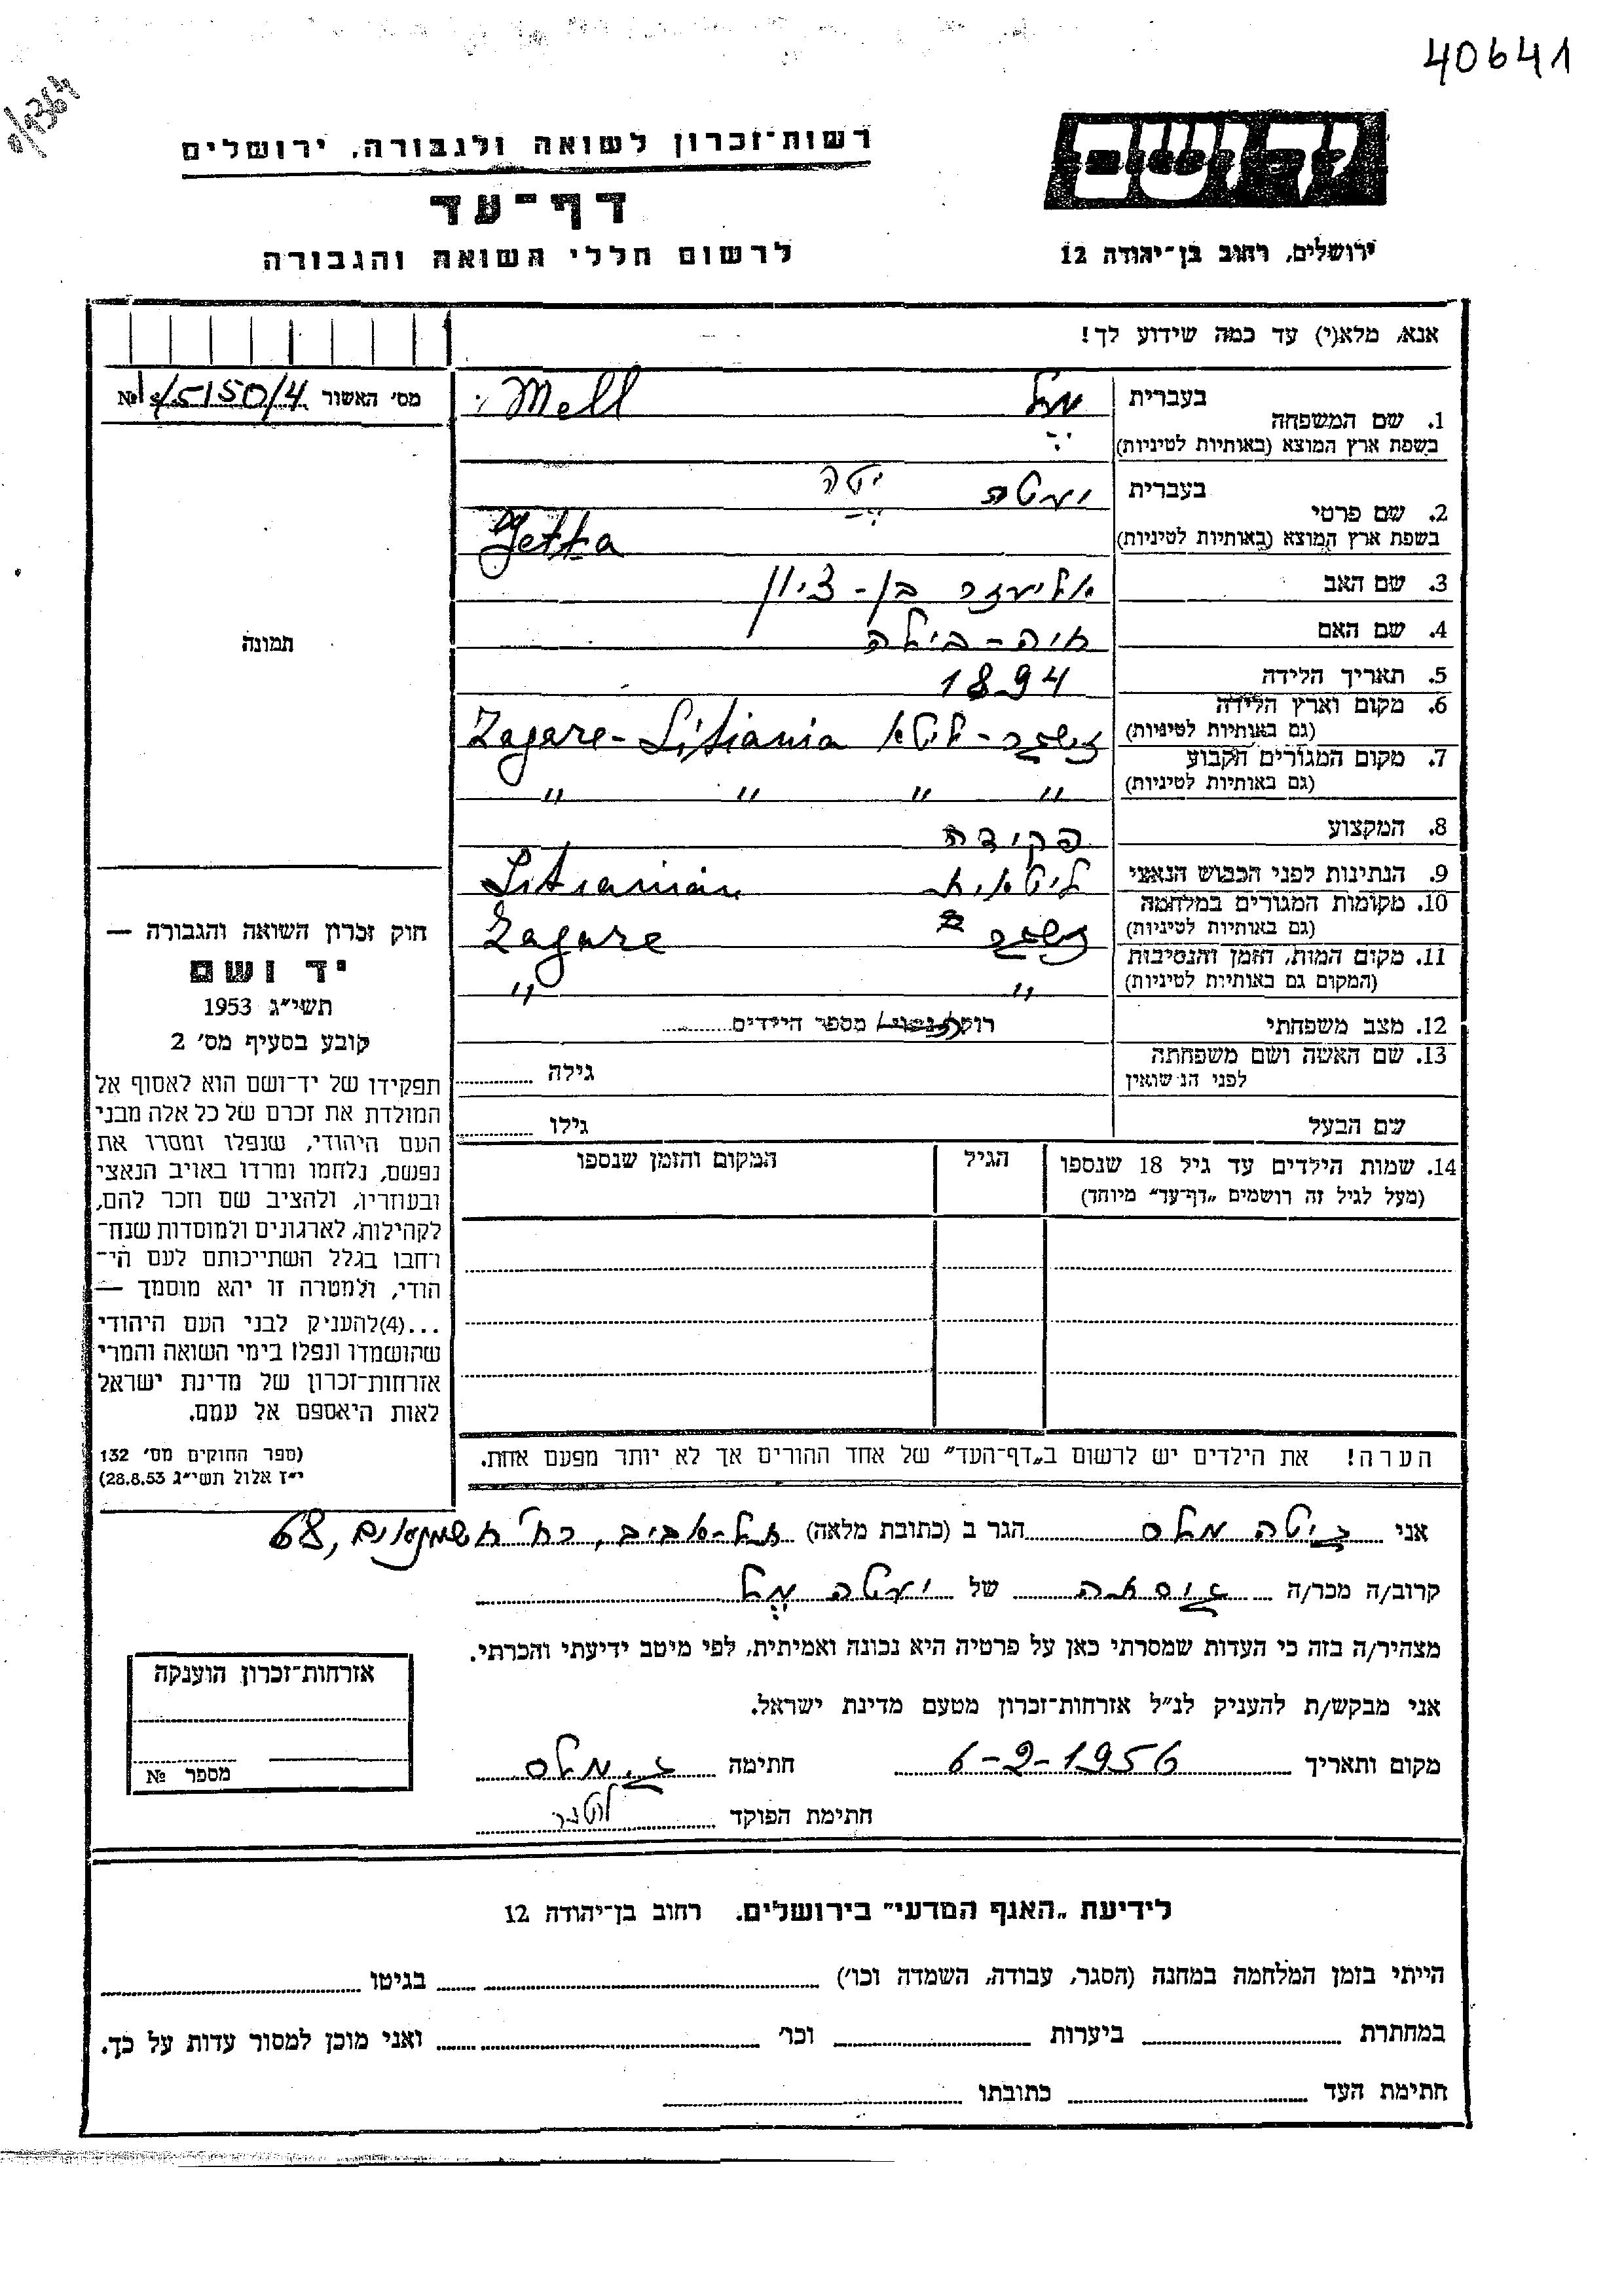 40641
רשות־זכרון לשואה ולגבורה, ירושלים
דף־עד
לרשום חללי השואה והגבורה
יד ושם
ירושלים, רחוב בן־יהודה 12
אנא, מלא(י) עד כמה שידוע לך!
מס׳ האשור 5150/4 №
1. שם המשפחה בעברית מל
בשפת ארץ המוצא (באותיות לטיניות) Mell
2. שם פרטי בעברית יעטה יטה
בשפת ארץ המוצא (באותיות לטיניות) Jetta
3. שם האב אליעזר בן-ציון
4. שם האם איה-ביילה
5. תאריך הלידה 1894
6. מקום וארץ הלידה
(גם באותיות לטיניות) ליטא Zagare-Litiania
7. מקום המגורים הקבוע
(גם באותיות לטיניות) " " " "
8. המקצוע פקידה
9. הנתינות לפני הכבוש הנאצי ליטאית Litianian
10. מקומות המגורים במלחמה
(גם באותיות לטיניות) Zagare
11. מקום המות, הזמן והנסיבות
(המקום גם באותיות לטיניות) " "
12. מצב משפחתי רוק/נשוי/ מספר הילדים
13. שם האשה ושם משפחתה
לפני הנישואין גילה
שם הבעל גילו
14. שמות הילדים עד גיל 18 שנספו הגיל המקום והזמן שנספו
(מעל לגיל זה רושמים „דף־עד״ מיוחד)
הערה! את הילדים יש לרשום ב„דף־העד״ של אחד ההורים אך לא יותר מפעם אחת.
תמונה
חוק זכרון השואה והגבורה —
יד ושם
תשי״ג 1953
קובע בסעיף מס׳ 2
תפקידו של יד־ושם הוא לאסוף אל
המולדת את זכרם של כל אלה מבני
העם היהודי, שנפלו ומסרו את
נפשם, נלחמו ומרדו באויב הנאצי
ובעוזריו, ולהציב שם וזכר להם,
לקהילות, לארגונים ולמוסדות שנח־
רחבו בגלל השתייכותם לעם הי־
הודי, ולמטרה זו יהא מוסמך —
...(4)להעניק לבני העם היהודי
שהושמדו ונפלו בימי השואה והמרי
אזרחות־זכרון של מדינת ישראל
לאות היאספם אל עמם.
(ספר החוקים מס׳ 132
י״ז אלול תשי״ג 28.8.53)
אני גיטה מלס הגר ב (כתובת מלאה) תל-אביב, רח׳ חשמונאים, 68
קרוב/ה מכר/ה גיסה של יעטה מל
מצהיר/ה בזה כי העדות שמסרתי כאן על פרטיה היא נכונה ואמיתית, לפי מיטב ידיעתי והכרתי.
אני מבקש/ת להעניק לנ״ל אזרחות־זכרון מטעם מדינת ישראל.
מקום ותאריך 6-2-1956 חתימה ג. מלס
חתימת הפוקד
אזרחות־זכרון הוענקה
מספר №
לידיעת „האגף המדעי״ בירושלים. רחוב בן־יהודה 12
הייתי בזמן המלחמה במחנה (הסגר, עבודה, השמדה וכו׳) בגיטו
במחתרת ביערות וכו׳ ואני מוכן למסור עדות על כך.
חתימת העד כתובתו